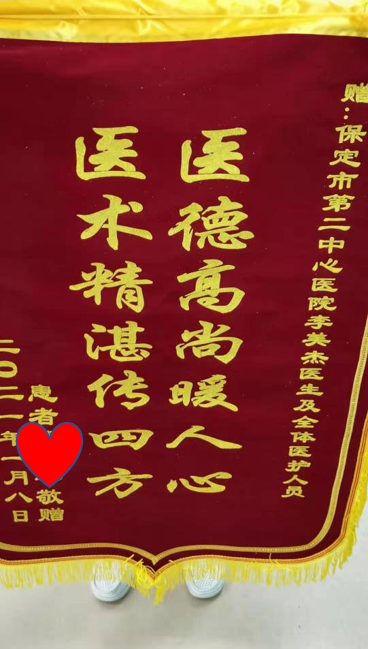 赠：保定市第二中心医院李美杰医生及全体医护人员
医德高尚暖人心
医术精湛传四方
患者 敬赠
二〇二一年一月八日